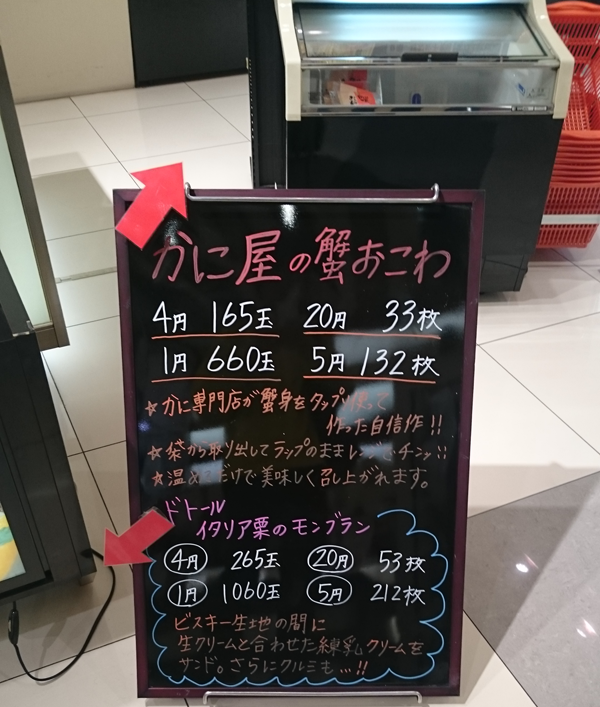 かに屋の蟹おこわ
4円 165玉 20円 33枚
1円 660玉 5円 132枚
☆かに専門店が蟹身をタップリ使って
作った自信作!!
☆袋から取り出してラップのままレンジでチンッ!!
☆温めるだけで美味しく召し上がれます。
ドトール
イタリア栗のモンブラン
4円 265玉 20円 53枚
1円 1060玉 5円 212枚
ビスキー生地の間に
生クリームと合わせた練乳クリームを
サンド。さらにクルミも…!!